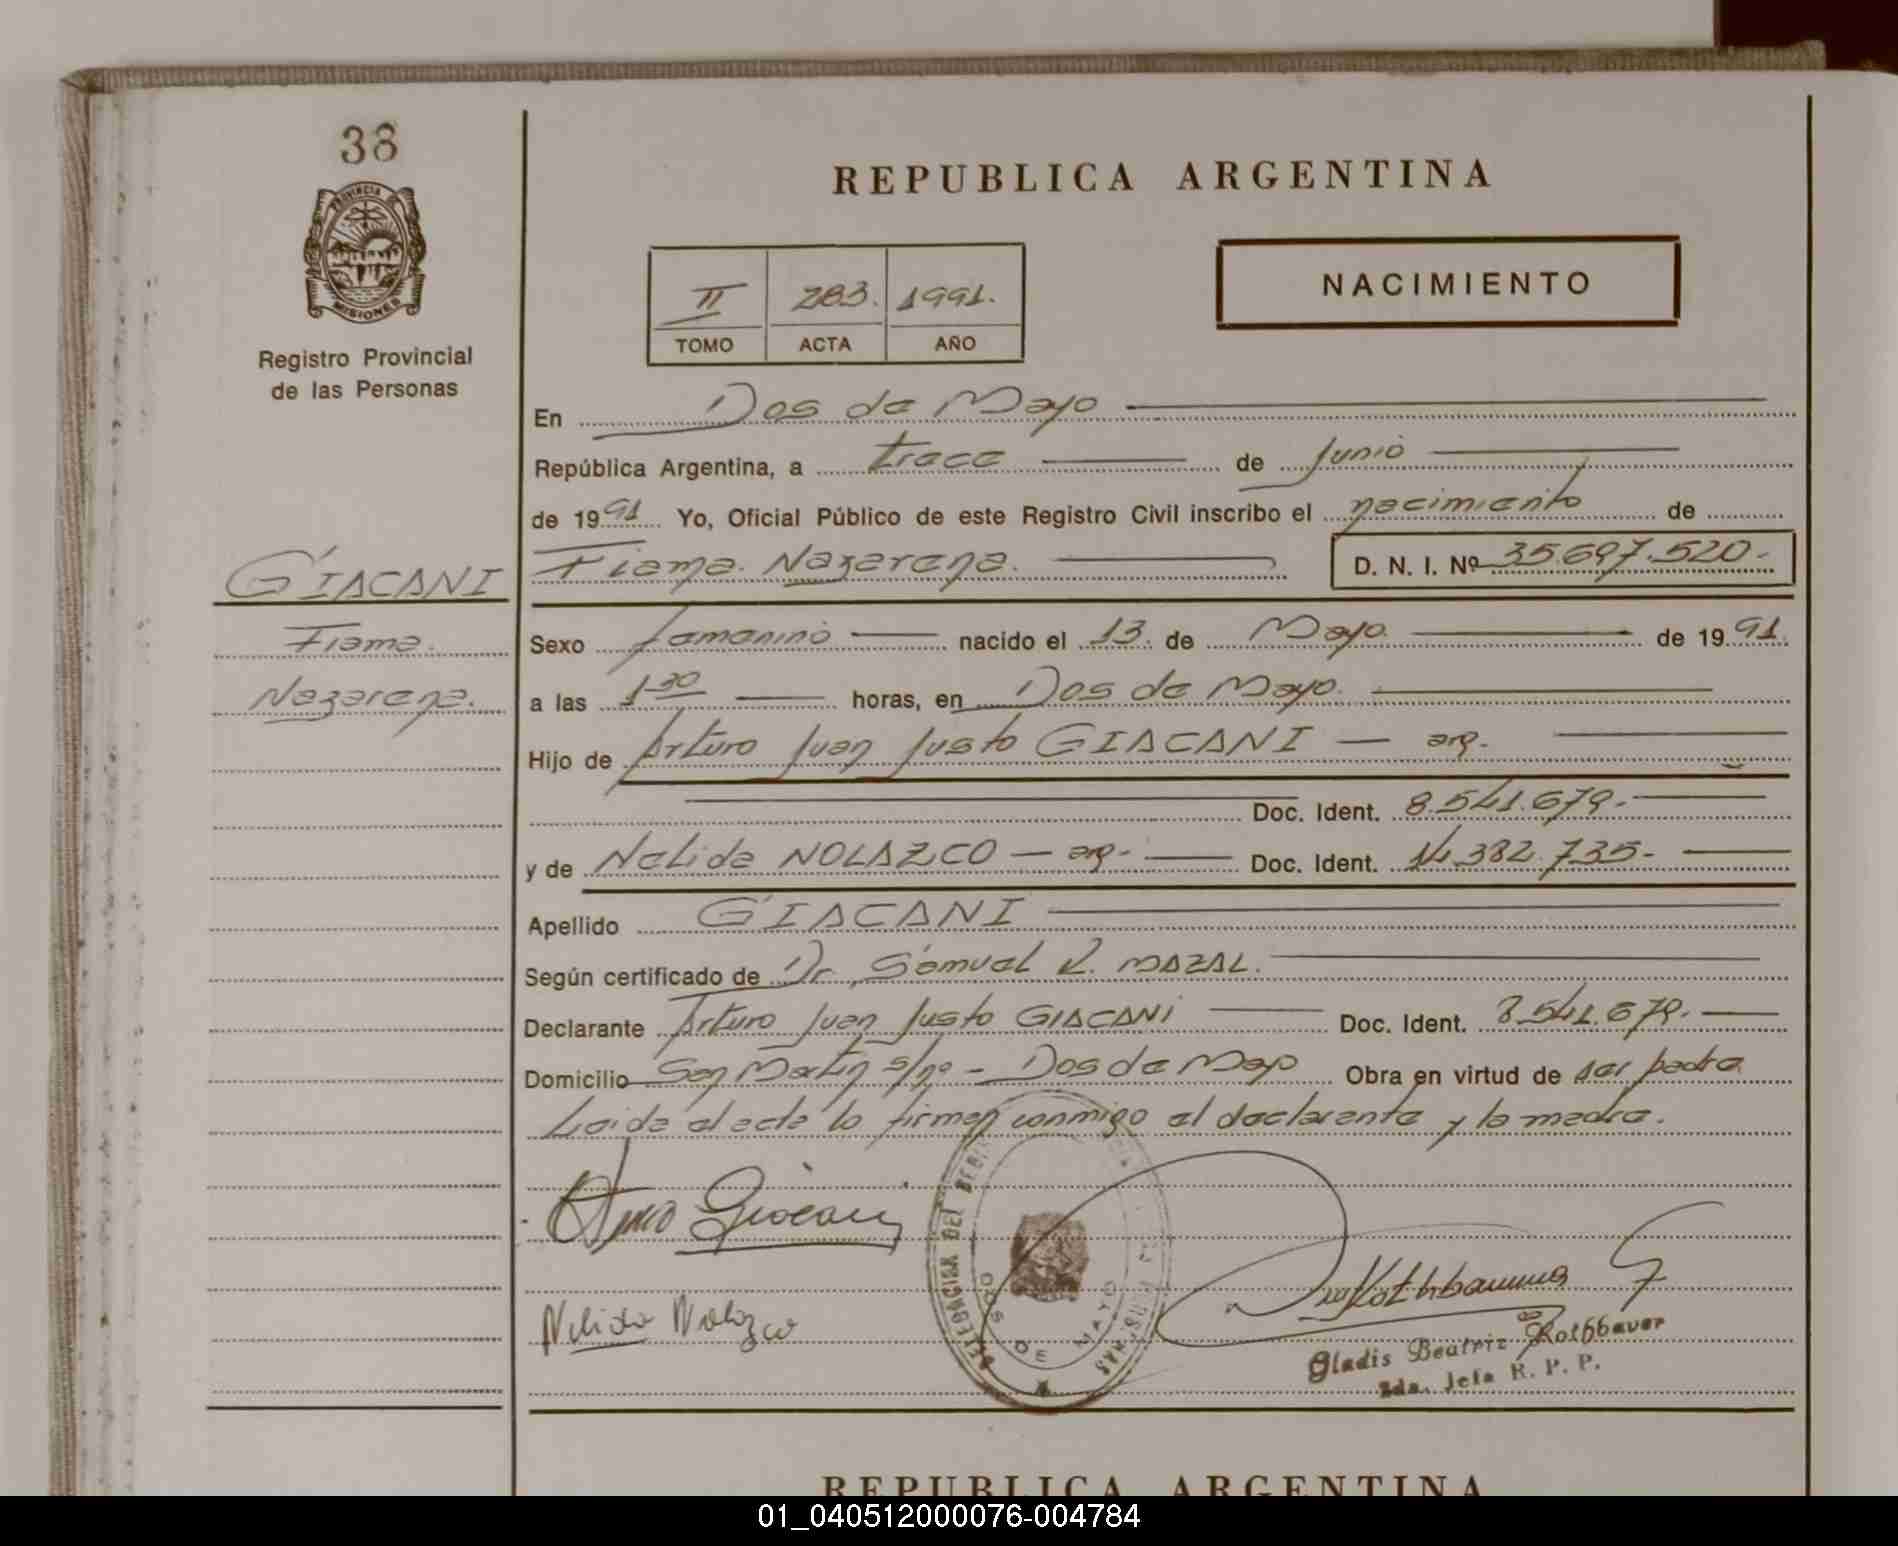 38
PROVINCIA DE
MISIONES
Registro Provincial
de las Personas
REPUBLICA ARGENTINA
II 283. 1991.
TOMO ACTA AÑO
NACIMIENTO
En Dos de Mayo
República Argentina, a trece de Junio
de 1991 Yo, Oficial Público de este Registro Civil inscribo el nacimiento de
GIACANI
Fiama Nazarena. D. N. I. Nº 35.697.520-
Fiama.
Sexo femenino nacido el 13. de Mayo de 1991.
Nazarena.
a las 1 30 horas, en Dos de Mayo.
Hijo de Arturo Juan Justo GIACANI — arg.
Doc. Ident. 8.541.679.-
y de Nelida NOLAZCO — arg.- Doc. Ident. 14.382.735-
Apellido GIACANI
Según certificado de Dr. Samuel R. MAZAL.
Declarante Arturo Juan Justo GIACANI Doc. Ident. 8.541.679.-
Domicilio San Martin s/nº - Dos de Mayo Obra en virtud de ser padre
Leida el acta lo firman conmigo el declarante y la madre.
Arturo Giacani
DELEGACION DEL
DOS DE MAYO
Rothbauer
Nelida Nolazco
Gladis Beatriz Rothbauer
2da. Jefa R. P. P.
REPUBLICA ARGENTINA
01_040512000076-004784